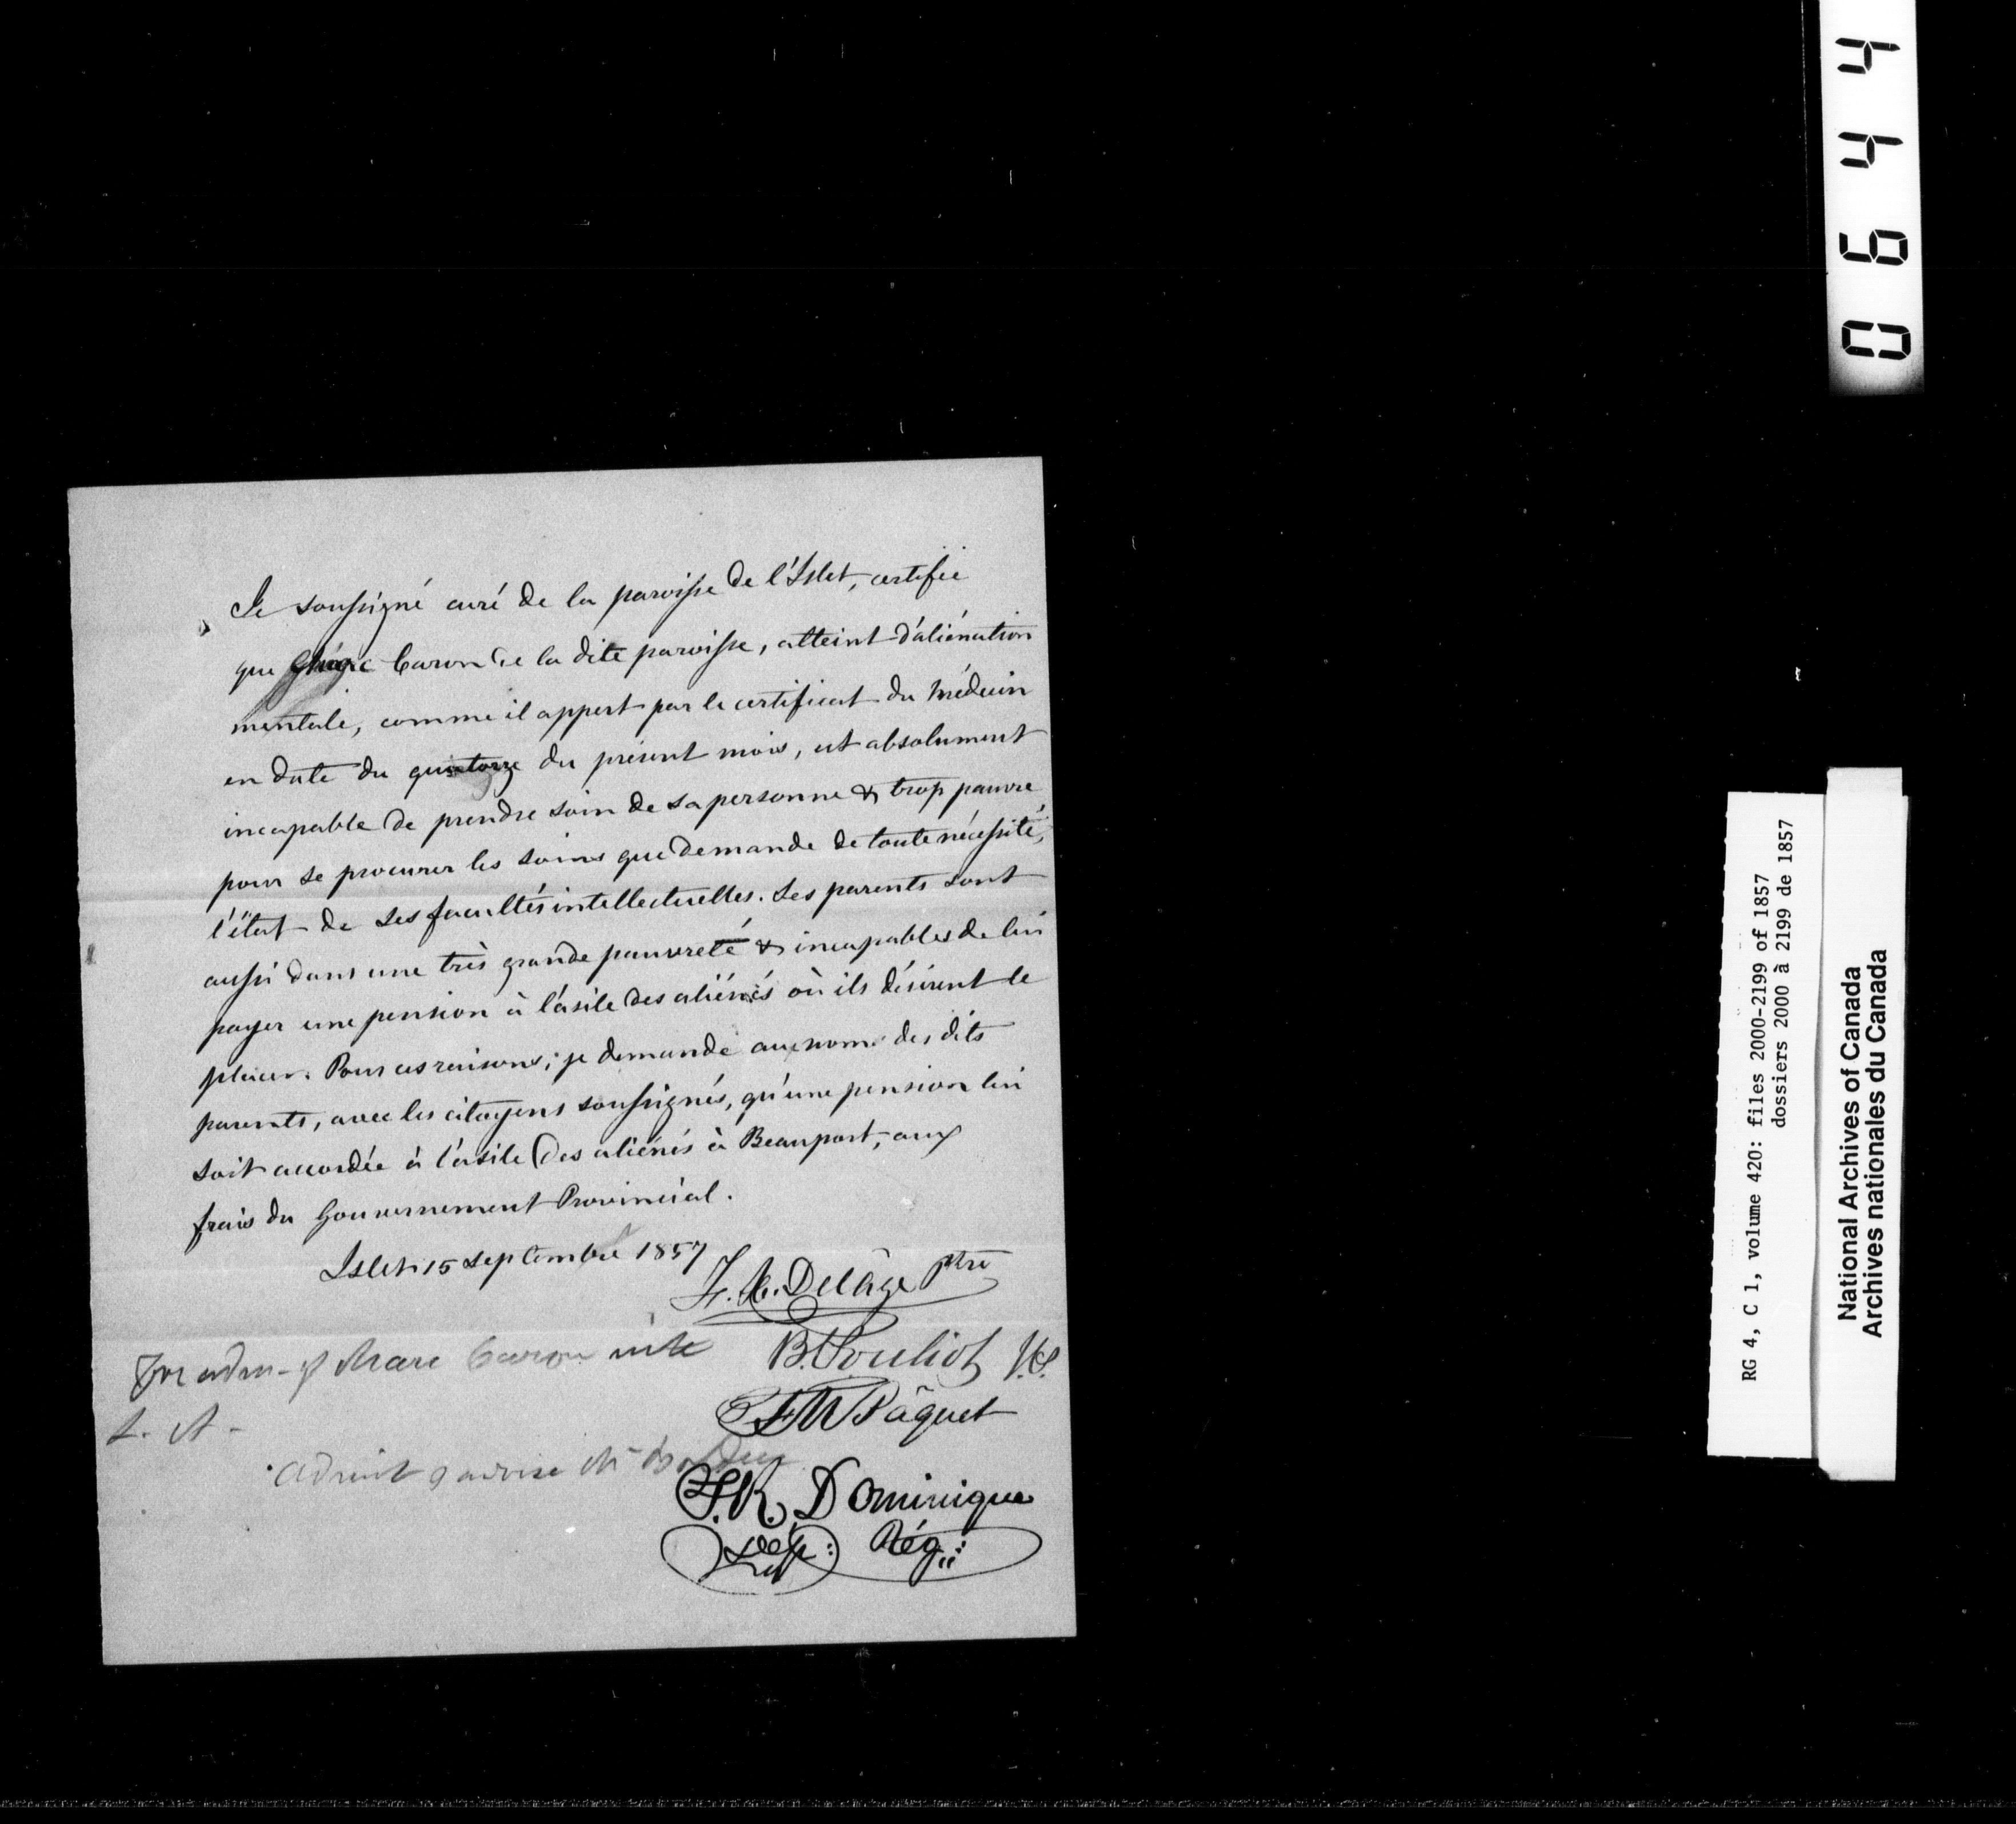 Je soussigné curé de la paroisse de l'Islet, certifie
que Caron de la dite paroisse, atteint d'aliénation
mentale, comme il appert par le certificat du médecin
en date du quatorze du présent mois, est absolument
incapable de prendre soin de sa personne & trop pauvre
pour se procurer les soins que demande de toute nécessité,
l'état de ses facultés intellectuelles. Ses parents sont
aussi dans une très grande pauvreté & incapables de lui
payer une pension à l'asile des aliénés où ils désirent le
placer. Pour ces raisons, je demande au nom des dits
parents, avec les citoyens soussignés, qu'une pension lui
soit accordée à l'asile des aliénés à Beauport, aux
frais du Gouvernement Provincial.
Islet 15 septembre 1857
F. X. Delâge Ptre
B. Pouliot J.P.
F M Pâquet
F. R. Dominique
Dép: Rég:
Caron
L. A.
Admit
0644
RG 4, C 1, volume 420: files 2000-2199 of 1857
dossiers 2000 à 2199 de 1857
National Archives of Canada
Archives nationales du Canada